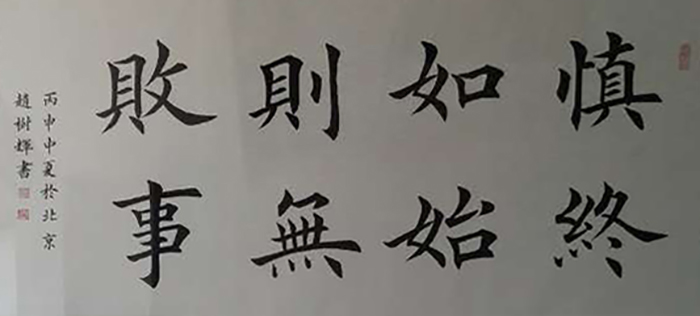 慎終
如始
則無
敗事
丙申中夏於北京
趙樹輝書